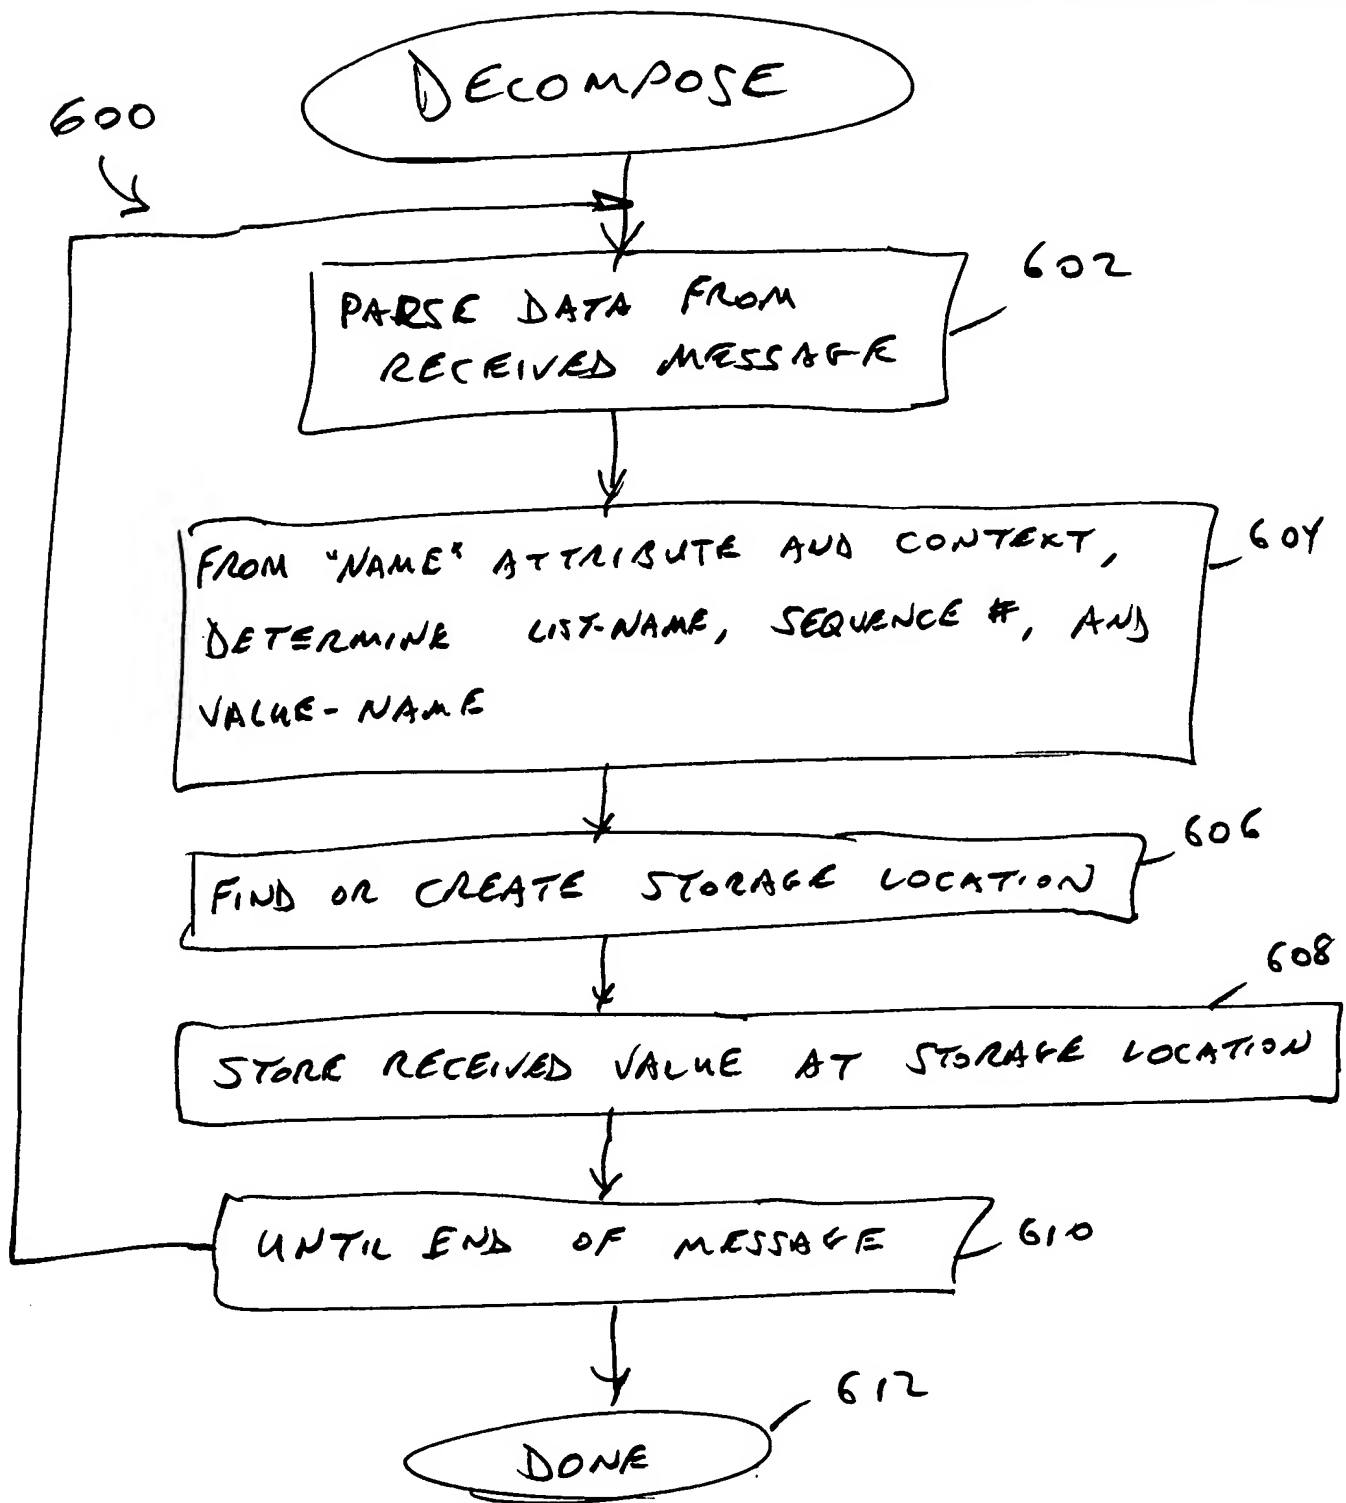 DECOMPOSE
600
PARSE DATA FROM
RECEIVED MESSAGE
602
FROM "NAME" ATTRIBUTE AND CONTEXT,
DETERMINE LIST-NAME, SEQUENCE #, AND
VALUE-NAME
604
FIND OR CREATE STORAGE LOCATION
606
STORE RECEIVED VALUE AT STORAGE LOCATION
608
UNTIL END OF MESSAGE
610
DONE
612